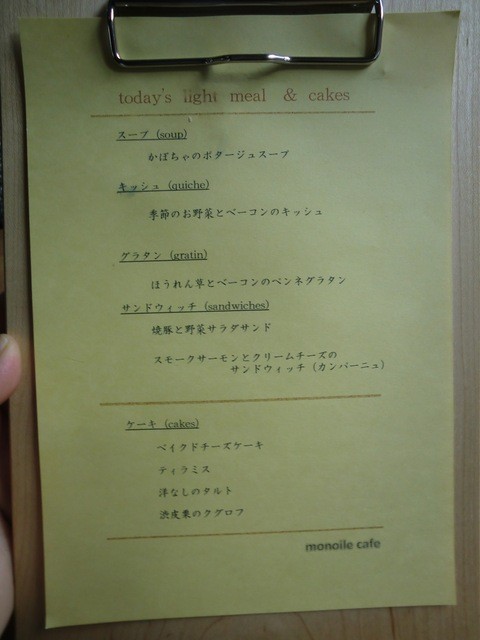 today's light meal & cakes
スープ (soup)
かぼちゃのポタージュスープ
キッシュ (quiche)
季節のお野菜とベーコンのキッシュ
グラタン (gratin)
ほうれん草とベーコンのペンネグラタン
サンドウィッチ (sandwiches)
焼豚と野菜サラダサンド
スモークサーモンとクリームチーズの
サンドウィッチ（カンパーニュ）
ケーキ (cakes)
ベイクドチーズケーキ
ティラミス
洋なしのタルト
渋皮栗のクグロフ
monoile cafe